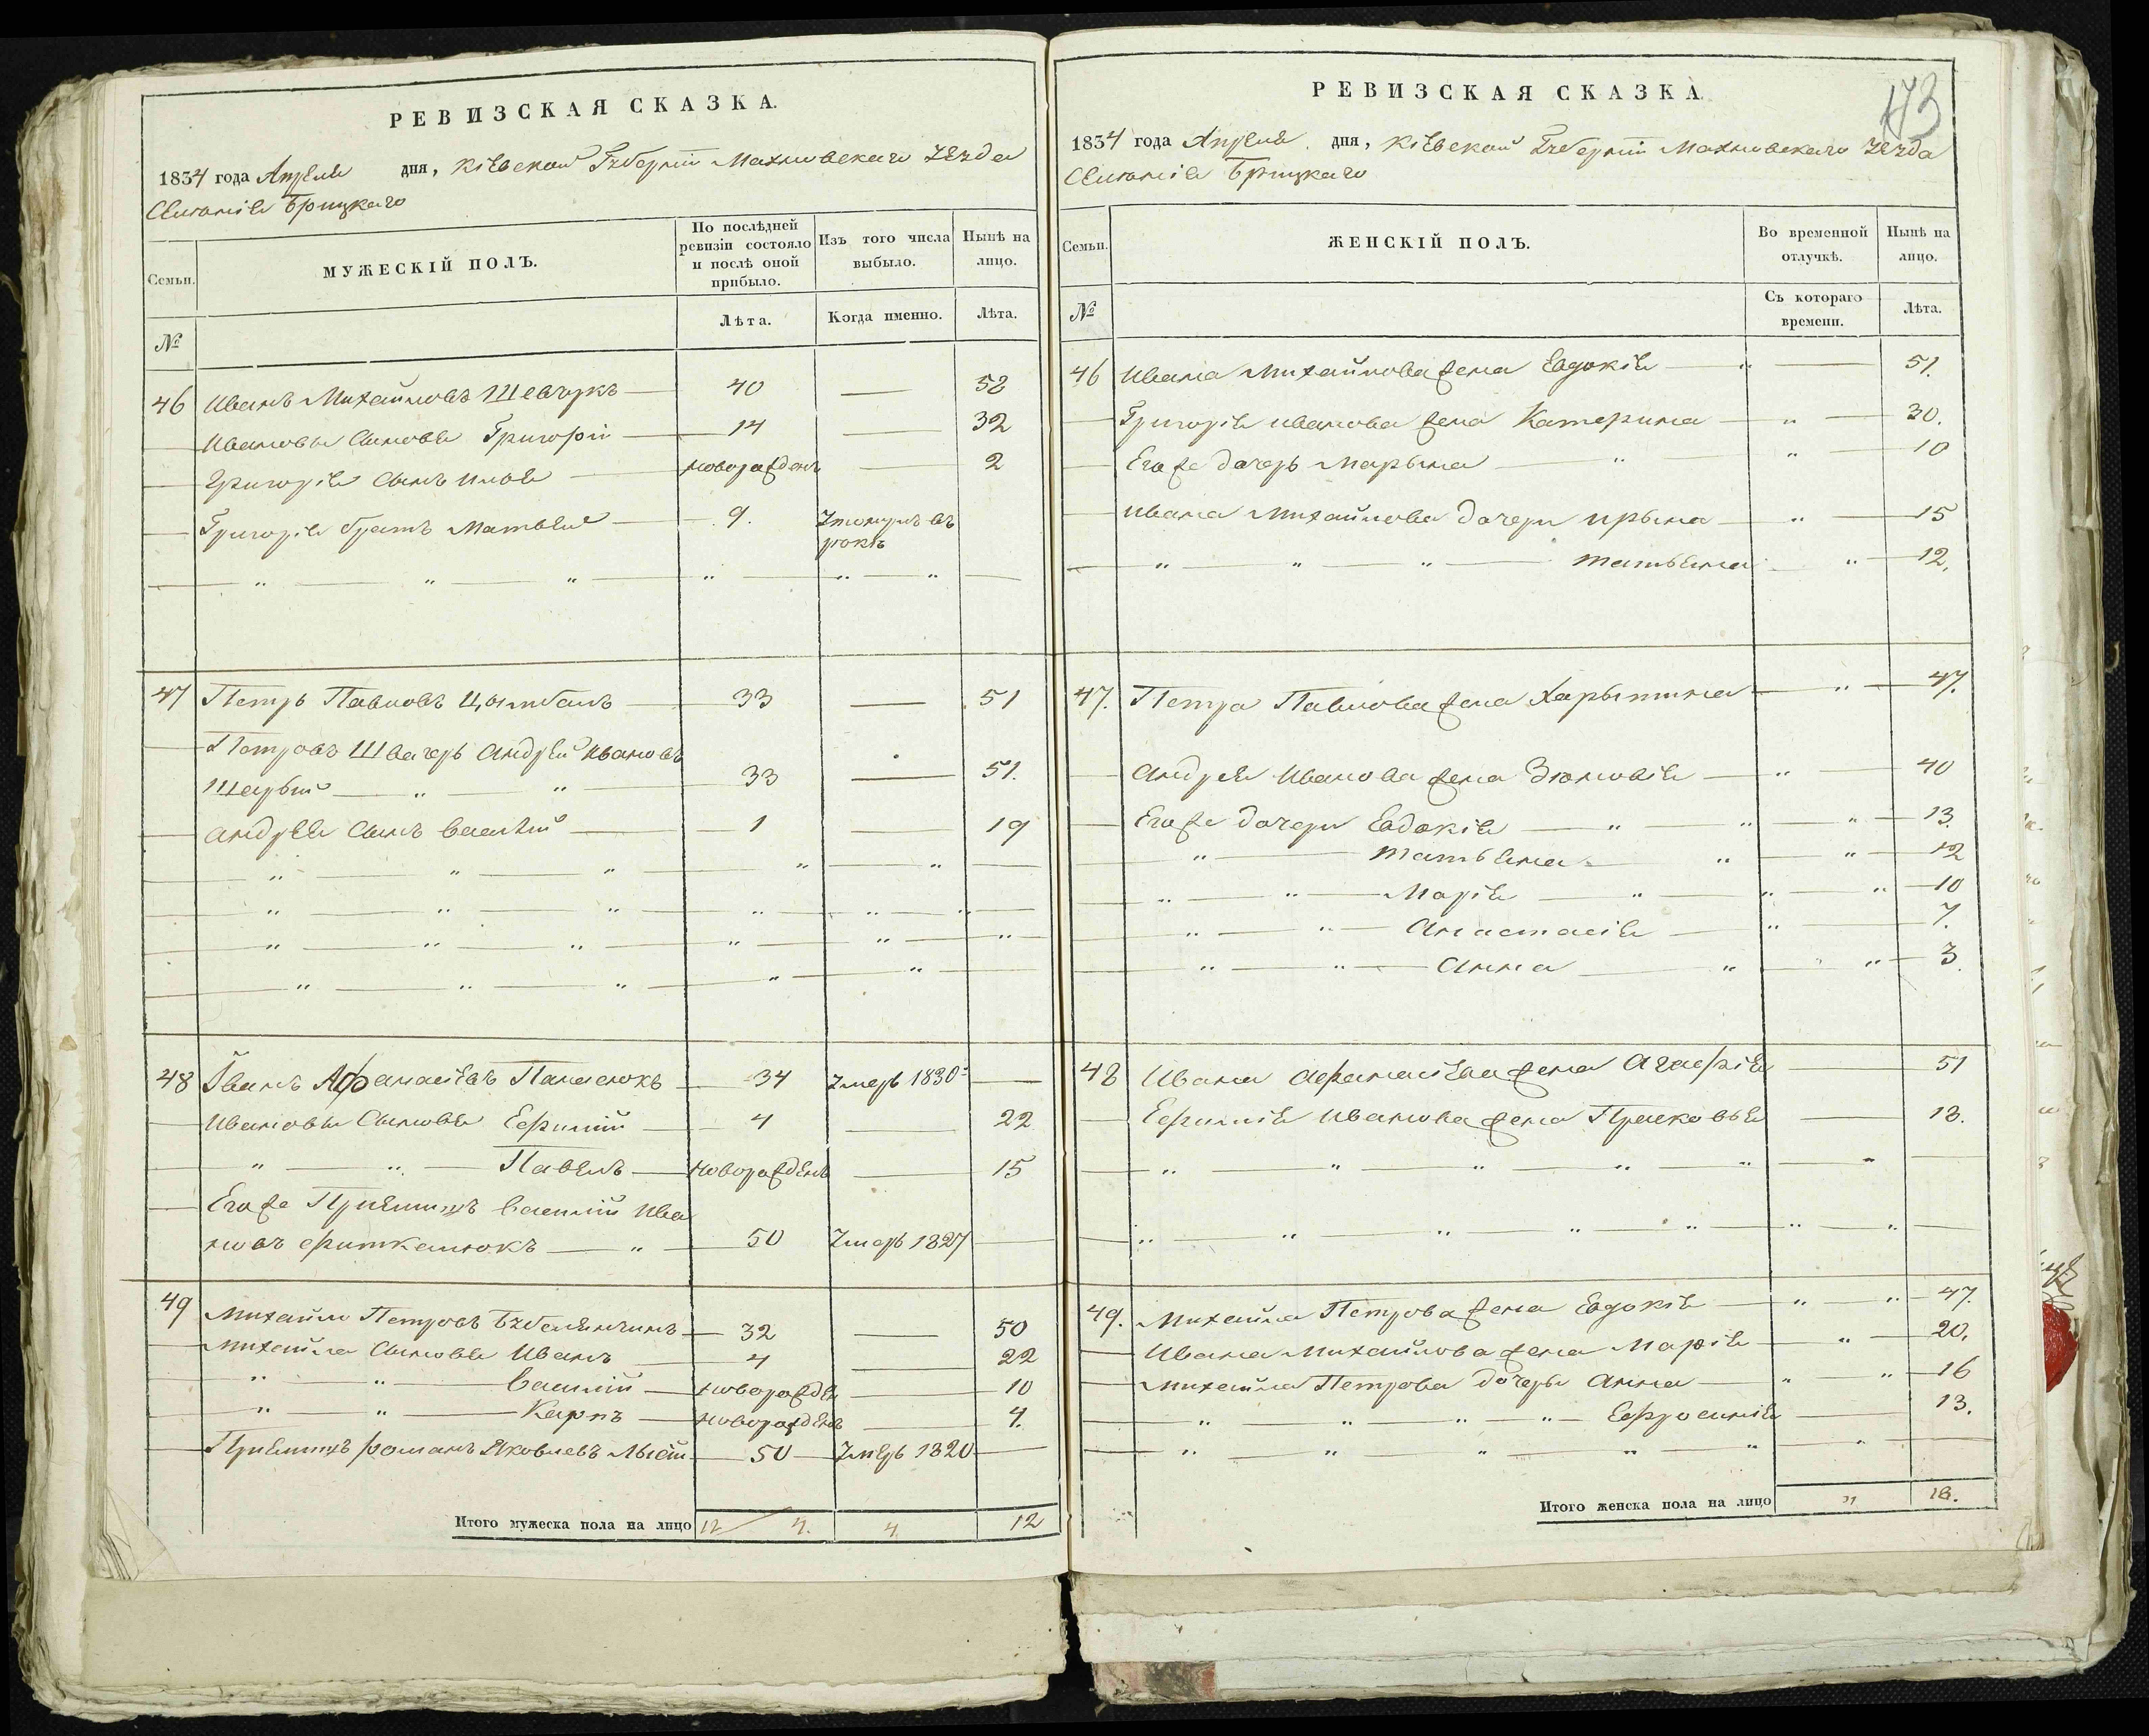 РЕВИЗСКАЯ СКАЗКА.
1834 года Апреля дня, Кіевской Губерніи Махновскаго Уезда
Селенія Брицкаго
Семьи.
МУЖЕСКІЙ ПОЛЪ.
По послѣдней ревизіи состояло и послѣ оной прибыло.
Изъ того числа выбыло.
Нынѣ на лицо.
№
Лѣта.
Когда именно.
Лѣта.
46 Иванъ Михайловъ Шевчукъ 40 — 52
Ивановы Сыновья Григорій 14 — 32
Григорія Сынъ Илья новорожденъ — 2
Григорія братъ Матвей 9.
47 Петръ Павловъ Цымбалъ 33 — 51
Петровъ Швагеръ Андрей Ивановъ
Щербій 33 — 51.
Андрея Сынъ Василій 1 — 19
48 Іванъ Афанасіевъ Панасюкъ 34 Умеръ 1830 —
Ивановы Сыновья Ефимій 4 — 22
Павелъ новорожденъ — 15
Егоже Приемышъ Василій Ива
новъ 50 Умеръ 1827
49 Михайло Петровъ 32 — 50
Михайла Сыновья Иванъ 4 — 22
Василій новорожде — 10
Карпъ новорожденъ — 4.
Приемышъ романъ Яковлевъ 50 Умеръ 1820 —
Итого мужеска пола на лицо 12 4. 4. 12
РЕВИЗСКАЯ СКАЗКА
173
1834 года Апреля дня, Кіевской Губерніи Махновскаго Уезда
Селенія Брицкаго
Семьи.
ЖЕНСКІЙ ПОЛЪ.
Во временной отлучкѣ.
Нынѣ на лицо.
№
Съ котораго времени.
Лѣта.
46 Ивана Михайлова жена Евдокія — 51.
Григорія Иванова жена Катерина — 30.
Егоже дочерь Марына — 10
Ивана Михайлова дочери Ирына — 15
Татьяна — 12.
47. Петра Павлова жена Харытина — 47.
Андрея Иванова жена Зюновія — 40
Егоже дочери Евдокія — 13.
Татьяна — 12
Марія — 10
Анастасія — 7.
Анна — 3.
48 Ивана Афанасіева жена Агафія — 51
Ефимія Иванова жена Прасковья — 18.
49. Михайла Петрова жена Евдокія — 47.
Ивана Михайлова жена Марія — 20.
Михайла Петрова дочеры Анна — 16
Ефросинія — 13.
Итого женска пола на лицо " 18.